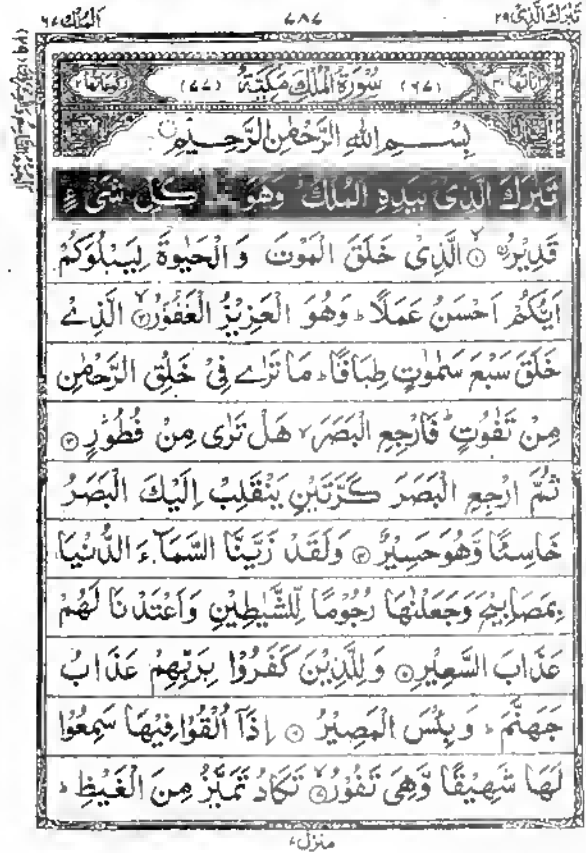 تَبٰرَكَ الَّذِیْ ۲۹ ۷۸۷ اَلْمُلْك ۶۷
اٰیَاتُهَا ۳۰ (۶۷) سُوْرَةُ الْمُلْكِ مَكِّیَّةٌ (۷۷) رُكُوْعَاتُهَا ۲
بِسْمِ اللهِ الرَّحْمٰنِ الرَّحِیْمِ
تَبٰرَكَ الَّذِیْ بِیَدِهِ الْمُلْكُ وَهُوَ كُلِّ شَیْءٍ
قَدِیْرُ ۙ﴿۱﴾ الَّذِیْ خَلَقَ الْمَوْتَ وَ الْحَیٰوةَ لِیَبْلُوَكُمْ
اَیُّكُمْ اَحْسَنُ عَمَلًا ؕ وَهُوَ الْعَزِیْزُ الْغَفُوْرُ ﴿۲﴾ ۙ الَّذِیْ
خَلَقَ سَبْعَ سَمٰوٰتٍ طِبَاقًا ؕ مَا تَرٰی فِیْ خَلْقِ الرَّحْمٰنِ
مِنْ تَفٰوُتٍ ؕ فَارْجِعِ الْبَصَرَ ۙ هَلْ تَرٰی مِنْ فُطُوْرٍ ﴿۳﴾
ثُمَّ ارْجِعِ الْبَصَرَ كَرَّتَیْنِ یَنْقَلِبْ اِلَیْكَ الْبَصَرُ
خَاسِئًا وَّهُوَ حَسِیْرٌ ﴿۴﴾ وَلَقَدْ زَیَّنَّا السَّمَآءَ الدُّنْیَا
بِمَصَابِیْحَ وَجَعَلْنٰهَا رُجُوْمًا لِّلشَّیٰطِیْنِ وَاَعْتَدْنَا لَهُمْ
عَذَابَ السَّعِیْرِ ﴿۵﴾ وَلِلَّذِیْنَ كَفَرُوْا بِرَبِّهِمْ عَذَابُ
جَهَنَّمَ ؕ وَبِئْسَ الْمَصِیْرُ ﴿۶﴾ اِذَآ اُلْقُوْا فِیْهَا سَمِعُوْا
لَهَا شَهِیْقًا وَّهِیَ تَفُوْرُ ﴿۷﴾ ۙ تَكَادُ تَمَیَّزُ مِنَ الْغَیْظِ ؕ
منزل ۷